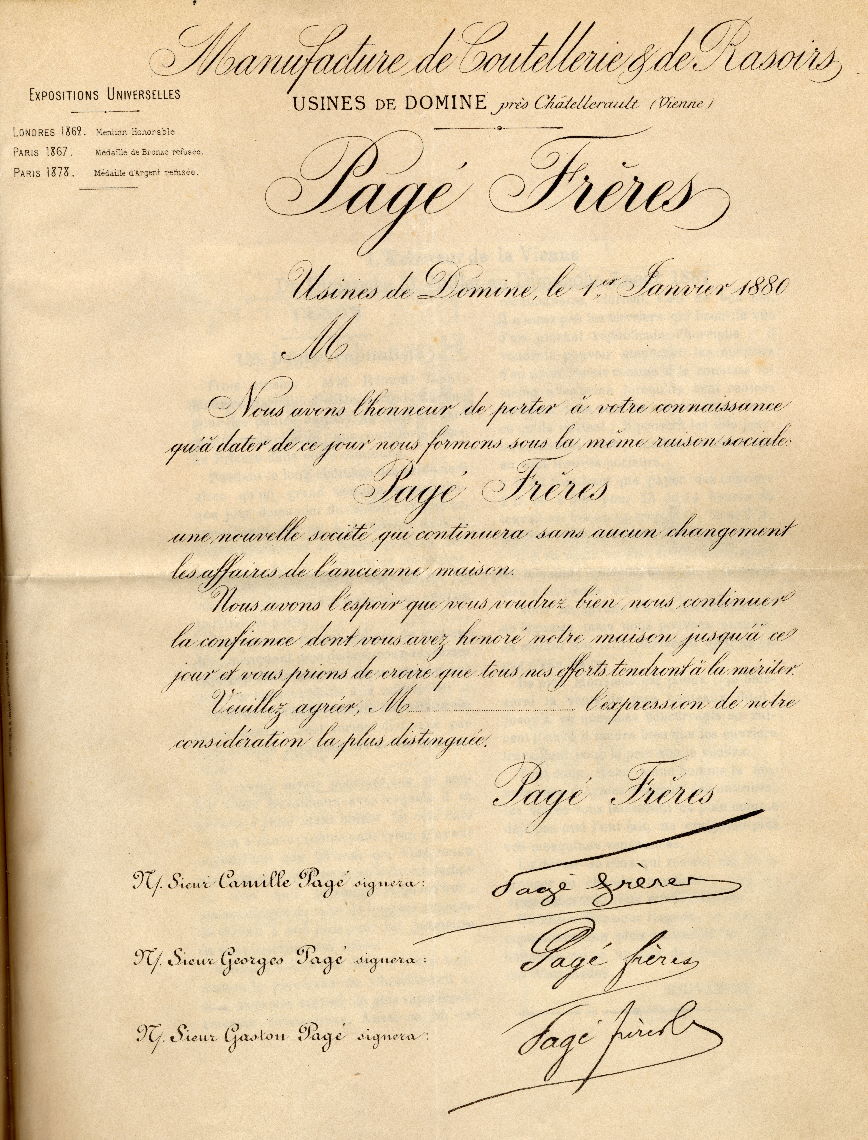 Manufacture de Coutellerie & de Rasoirs
EXPOSITIONS UNIVERSELLES
USINES DE DOMINE près Châtellerault (Vienne)
LONDRES 1862. Mention Honorable
PARIS 1867. Médaille de Bronze refusée.
PARIS 1878. Médaille d'Argent refusée.
Pagé Frères
Usines de Domine, le 1er Janvier 1880
M
Nous avons l'honneur de porter à votre connaissance
qu'à dater de ce jour nous formons sous la même raison sociale:
Pagé Frères
une nouvelle société qui continuera sans aucun changement
les affaires de l'ancienne maison.
Nous avons l'espoir que vous voudrez bien nous continuer
la confiance dont vous avez honoré notre maison jusqu'à ce
jour et vous prions de croire que tous nos efforts tendront à la mériter.
Veuillez agréer, M l'expression de notre
considération la plus distinguée.
Pagé Frères
N/. Sieur Camille Pagé signera: Pagé frères
N/. Sieur Georges Pagé signera: Pagé frères
N/. Sieur Gaston Pagé signera: Pagé frères